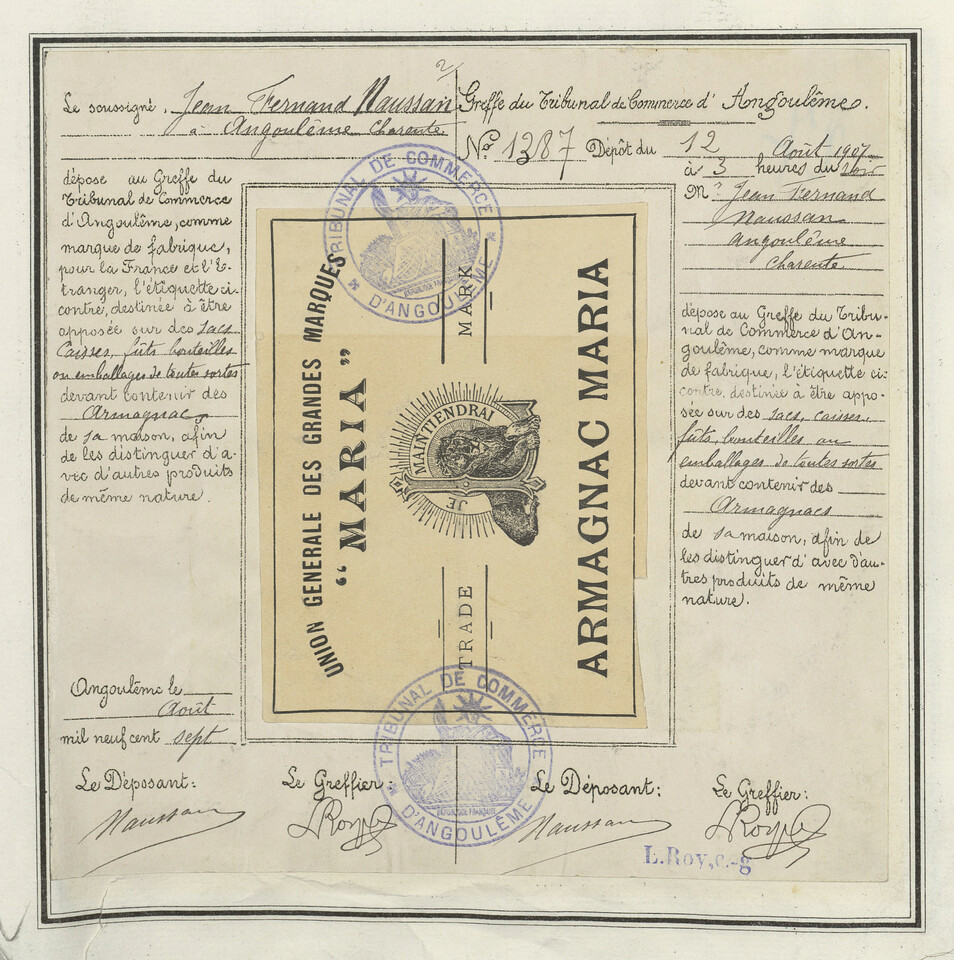 2/
Le soussigné, Jean Fernand Naussan
à Angoulême Charente
dépose au Greffe du
Tribunal de Commerce
d'Angoulême, comme
marque de fabrique,
pour la France et l'É-
tranger, l'étiquette ci-
contre, destinée à être
apposée sur des sacs
Caisses, fûts bouteilles
ou emballages de toutes sortes
devant contenir des
Armagnacs
de sa maison, afin
de les distinguer d'a-
vec d'autres produits
de même nature.
Angoulême le
Août
mil neuf cent sept
Le Déposant:
Naussan
Le Greffier:
LRoy
TRIBUNAL DE COMMERCE
D'ANGOULÊME
RÉPUBLIQUE FRANÇAISE
UNION GENERALE DES GRANDES MARQUES
“MARIA”
TRADE MARK
JE MAINTIENDRAI
ARMAGNAC MARIA
TRIBUNAL DE COMMERCE
D'ANGOULÊME
RÉPUBLIQUE FRANÇAISE
Greffe du Tribunal de Commerce d'Angoulême.
No 1387 Dépôt du 12 Août 1907
à 3 heures du soir
Mr Jean Fernand
Naussan
Angoulême
Charente
dépose au Greffe du Tribu-
nal de Commerce d'An-
goulême, comme marque
de fabrique, l'étiquette ci-
contre, destinée à être appo-
sée sur des sacs, caisses,
fûts, bouteilles ou
emballages de toutes sortes
devant contenir des
Armagnacs
de sa maison, afin de
les distinguer d'avec d'au-
tres produits de même
nature.
Le Déposant:
Naussan
Le Greffier:
LRoy
L. Roy, c.-g